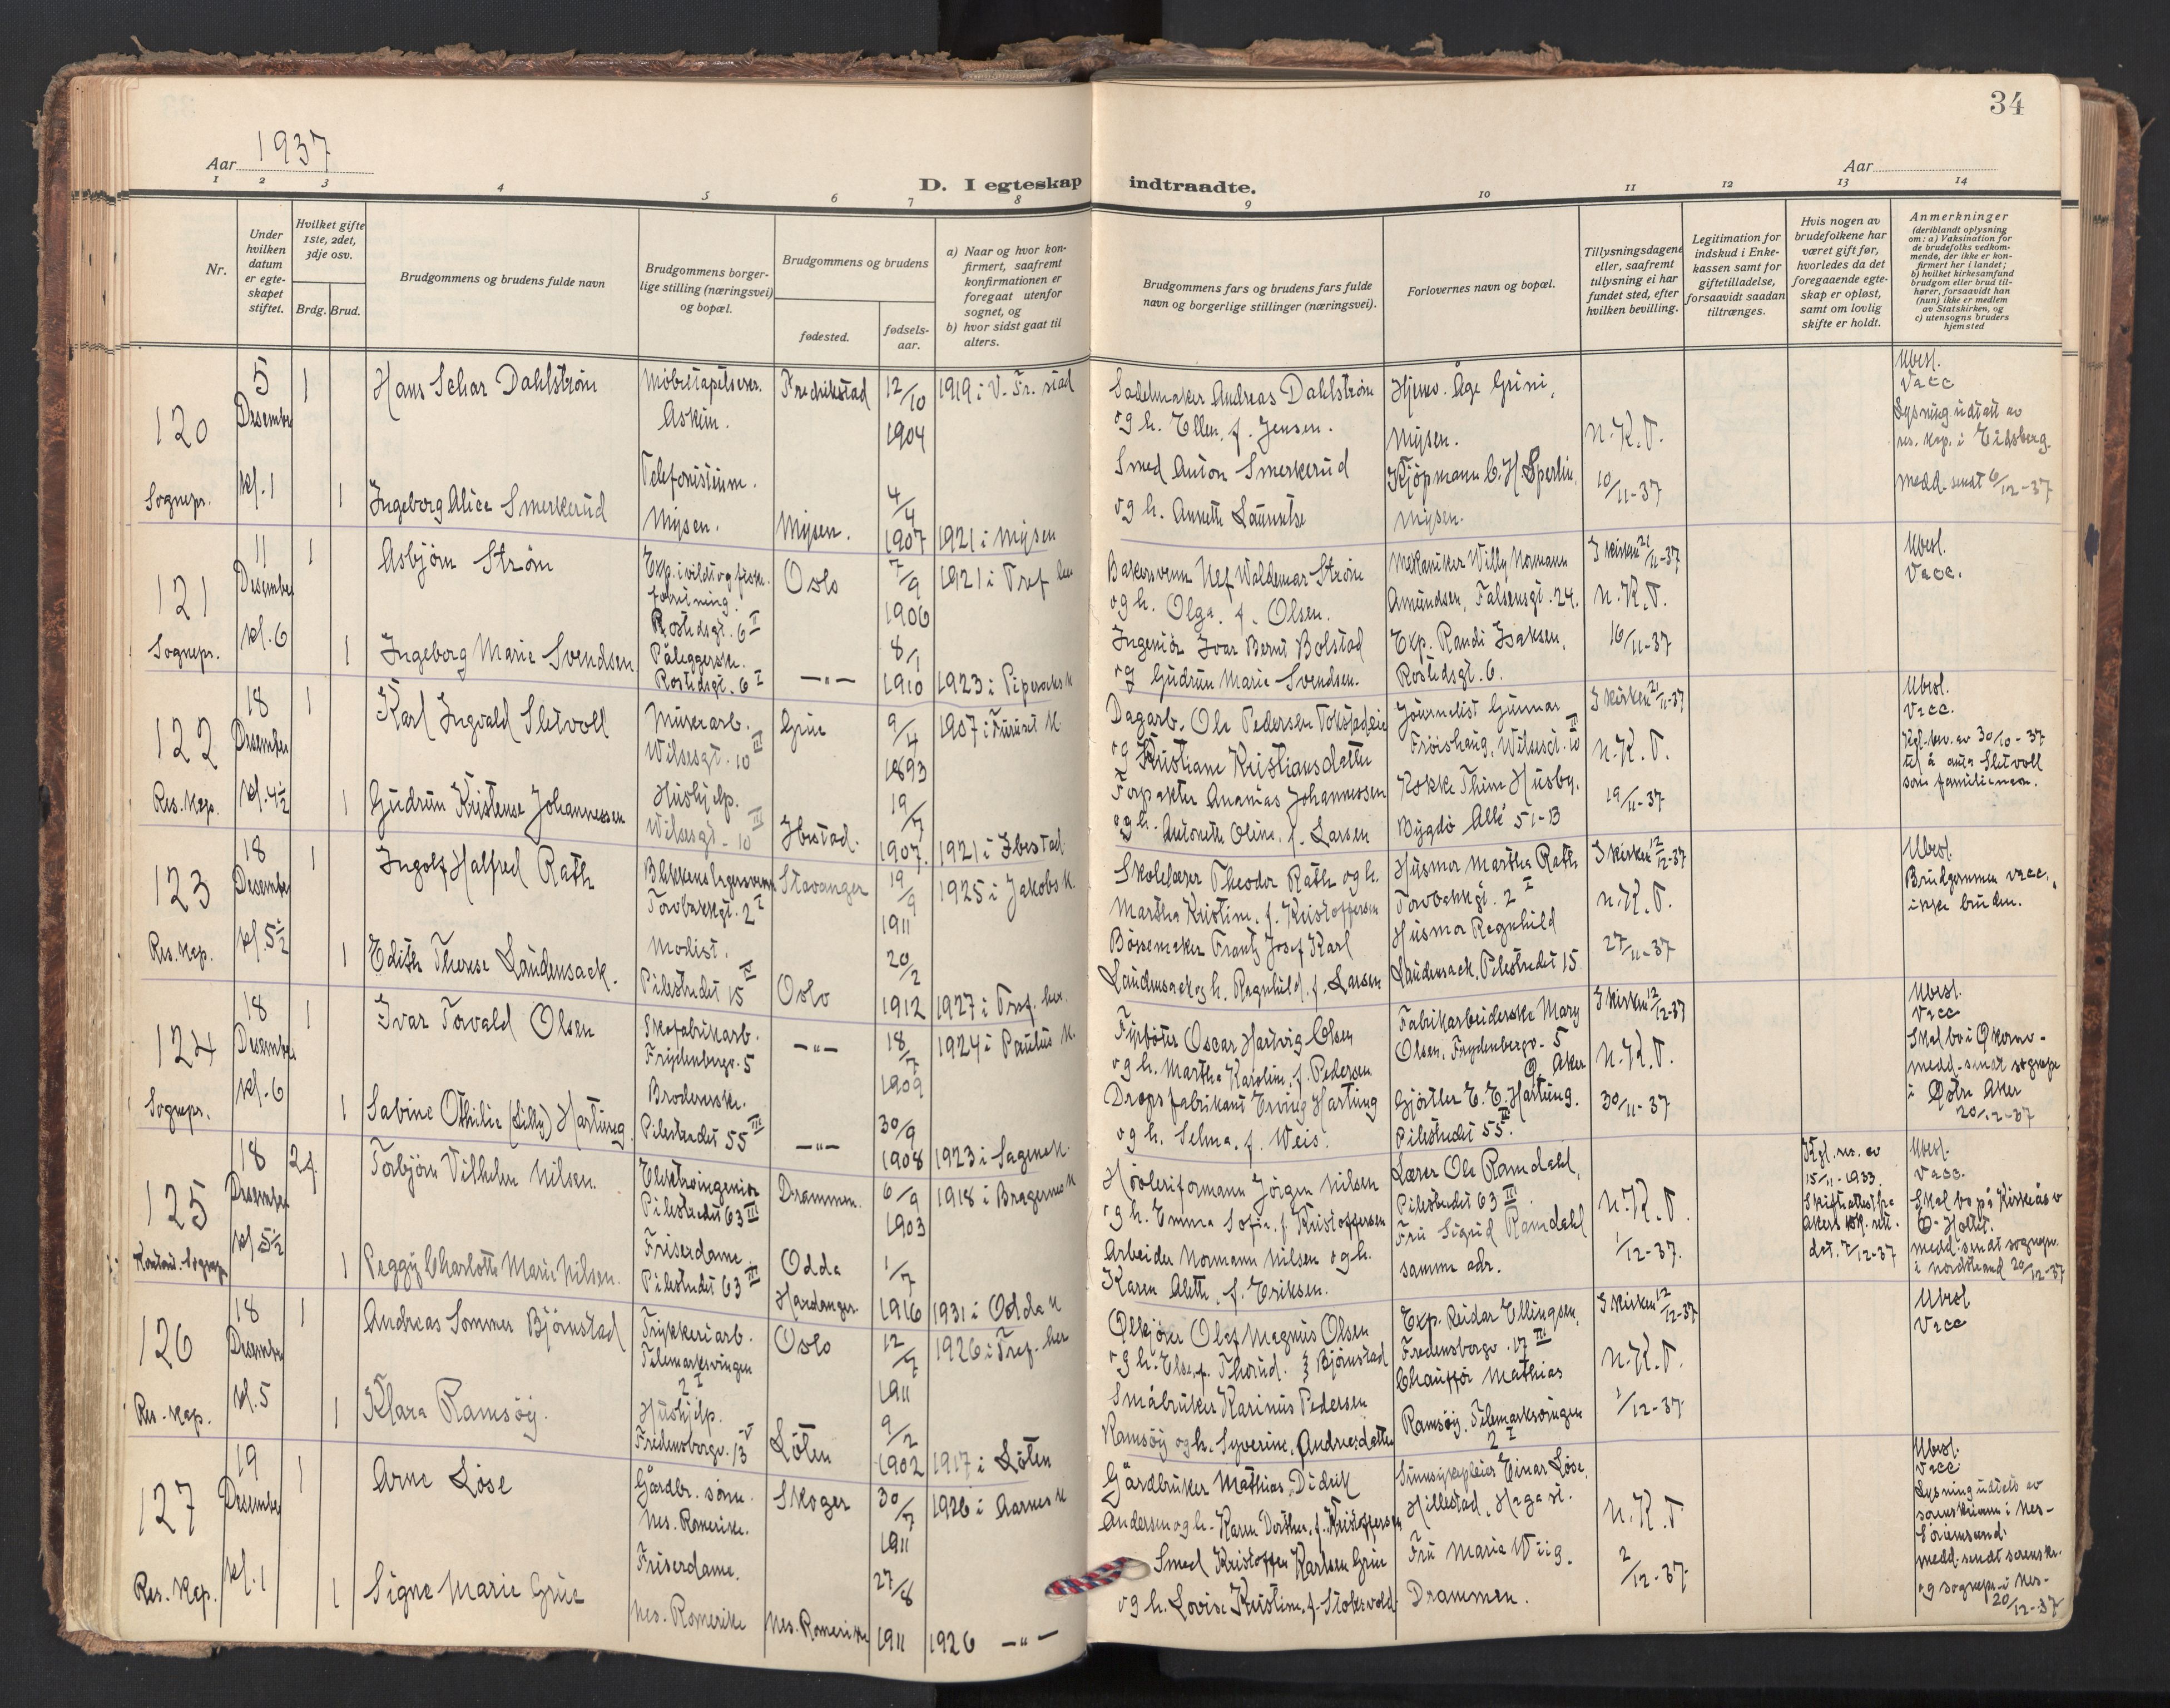 34
Aar 1937
Aar
D. I egteskap indtraadte.
1 2 3 4 5 6 7 8 9 10 11 12 13 14
Nr.
Under hvilken datum er egteskapet stiftet.
Hvilket gifte 1ste, 2det, 3dje osv.
Brdg. Brud.
Brudgommens og brudens fulde navn
Brudgommens borgerlige stilling (næringsvei) og bopæl.
Brudgommens og brudens
fødested.
fødselsaar.
a) Naar og hvor konfirmert, saafremt konfirmationen er foregaat utenfor sognet, og
b) hvor sidst gaat til alters.
Brudgommens fars og brudens fars fulde navn og borgerlige stillinger (næringsvei).
Forlovernes navn og bopæl.
Tillysningsdagene eller, saafremt tillysning ei har fundet sted, efter hvilken bevilling.
Legitimation for indskud i Enkekassen samt for giftetilladelse, forsaavidt saadan tiltrænges.
Hvis nogen av brudefolkene har været gift før, hvorledes da det foregaaende egteskap er opløst, samt om lovlig skifte er holdt.
Anmerkninger (deriblandt oplysning om: a) Vaksination for de brudefolks vedkommende, der ikke er konfirmert her i landet; b) hvilket kirkesamfund brudgom eller brud tilhører, forsaavidt han (hun) ikke er medlem av Statskirken, og c) utensogns bruders hjemsted
120 Sognepr.
5 Desember kl. 1
1 Hans Dahlström
Askim.
Fredrikstad 12/10 1904
1919 i V. Fr. stad
Sadelmaker Andreas Dahlström og h. Ellen, f. Jensen.
Åge Grini, Mysen.
N.K.T. 10/11-37
Ubesl. Vacc Lysning utstett av res. kap. i Eidsberg. Medd. sendt 6/12-37
1 Ingeborg Alice Smerkerud
Telefonistinne. Mysen.
Mysen. 4/4 1907
1921 i Mysen
Smed Anton Smerkerud og h. Annette
Kjöpmann C. H. Mysen.
121 Sognepr.
11 Desember kl. 6
1 Asbjörn Ström
Exp. i vildt og fiskeforretning. Rostedsgt. 6 I
Oslo 7/9 1906
1921 i Tref. her
Bakersvenn Waldemar Ström og h. Olga, f. Olsen.
Mekaniker Willy Normann Amundsen, Falsensgt. 24.
I kirken 21/11-37 N.K.T. 16/11-37
Ubesl. Vacc.
1 Ingeborg Marie Svendsen
Påleggerske. Rostedsgt. 6 I
— " — 8/1 1910
1923 i Piperviks k
Ingeniör Ivar Bernt Bolstad og Gudrun Marie Svendsen.
Exp. Randi Isaksen, Rostedsgt. 6.
122 Res. kap.
18 Desember kl. 4 1/2
1 Karl Ingvald Sletvoll
Murerarb. Wilsesgt. 10 III
Grue 9/4 1893
1907 i Furuset k
Dagarb. Ole Pedersen og Kristiane Kristiansdatter
Journalist Gunnar Fröishaug, Wilsesgt. 10 III
I kirken 21/11-37 N.K.T. 19/11-37
Ubesl. Vacc. Kgl. bev. av 30/10-37 til å anta Sletvoll som familienavn.
1 Gudrun Kristense Johannessen
Hushjelp. Wilsesgt. 10 III
Ibestad. 19/7 1907.
1921 i Ibestad.
Forpakter Ananias Johannessen og h. Antonette Oline, f. Larsen
Kokke Thine Husby, Bygdö Allé 51-13
123 Res. kap.
18 Desember kl. 5 1/2
1 Ingolf Halfred Rath
Blikkenslagersvenn Torvbakkgt. 2 I
Stavanger 19/9 1911
1925 i Jakobs k.
Skolelærer Theodor Rath og h. Martha Kristine, f. Kristoffersen
Husmor Martha Rath Torvbakkgt. 2 I
I kirken 12/12-37 N.K.T. 27/11-37
Ubesl. Brudgommen vacc., ikke bruden.
1 Edith Therese Laudensack.
Modist. Pilestredet 15
Oslo 20/2 1912
1927 i Tref. her.
Börsemaker Frantz Josef Karl Laudensack og h. Ragnhild, f. Larsen
Husmor Ragnhild Laudensack, Pilestredet 15
124 Sognepr.
18 Desember kl. 6
1 Ivar Torvald Olsen
Skofabrikarb. Frydenbergv. 5
— " — 18/7 1909
1924 i Paulus k.
Fyrböter Oscar Hartvig Olsen og h. Martha Karoline, f. Pedersen
Fabrikarbeiderske Mary Olsen, Frydenbergv. 5 Ö. Aker
I kirken 12/12-37 N.K.T. 30/11-37
Ubesl. Vacc Skal bo i Ökern- medd. sendt sognepr. i Östre Aker 20/12-37
1 Sabine Othilie (Lilly) Hartung.
Brodererske. Pilestredet 55 III
— " — 30/9 1908
1923 i Sagene k.
Dropsfabrikant Erving Hartung og h. Selma, f. Weis.
Gjörtler E. E. Hartung. Pilestredet 55 III.
125
18 Desember kl 5 1/2
2 f. Torbjörn Vilhelm Nilsen.
Elektroingeniör Pilestredet 63 III
Drammen. 6/9 1903
1918 i Bragernes k
Hövleriformann Jörgen Nilsen og h. Emma Sofie, f. Kristoffersen
Lærer Ole Ramdahl, Pilestredet 63 III
N.K.T. 1/12-37.
Kgl. res. av 15/11-1933. Skifteattest fra Akers dat. 7/12-37
Ubesl. Vacc. Skal bo på Kirkeåsv Medd. sendt sognepr. i Nordstrand 20/12-37
1 Peggy Charlotte Marie Nilsen.
Friserdame. Pilestredet 63 III
Odda Hardanger. 1/7 1916
1931 i Odda k
Arbeider Normann Nilsen og h. Karen Alette, f. Eriksen.
Fru Sigrid Ramdahl samme adr.
126 Res. kap.
18 Desember kl. 5
1 Andreas Sommer Björnstad
Trykkeriarb. Telemarksvingen 2 I
Oslo 12/7 1911
1926 i Tref. her
Ölkjörer Olaf Magnus Olsen og h. Else, f. Thorud. Björnstad
Exp. Reidar Ellingsen, Fredensborgv. 17 III
I kirken 12/12-37 N.K.T. 1/12-37
Ubesl Vacc
1 Klara Ramsöy.
Hushjelp. Fredensborgv. 13 V
Löten 9/2 1902
1917 i Löten
Småbruker Karinus Pedersen Ramsöy og h. Syverine, Andreasdatter
Chaufför Mathias Ramsöy, Telemarksvingen 2 I
127 Res. kap.
19 Desember kl. 1
1 Arne Löse
Gårdbr. sönn. Nes. Romerike.
Skoger 30/7 1911
1926 i Aarnes k
Gårdbruker Mathias Didrik Andersen og h. Karen Dorthea, f. Kristoffersen
Sinnsykepleier Einar Löse, Hillestad, Haga st.
N.K.T 2/12-37.
Ubesl. Vacc Lysning utstedt av sorenskriveren i Nes- Sörumsand. Medd. sendt sorenskr. og sognepr. i Nes- 20/12-37
1 Signe Marie Grue
Friserdame. Nes. Romerike
Nes. Romerike 27/8 1911
1926 — " —
Smed Kristoffer Karlsen Grue og h. Lovise Kristine, f.
Fru Marie Wiig. Drammen.